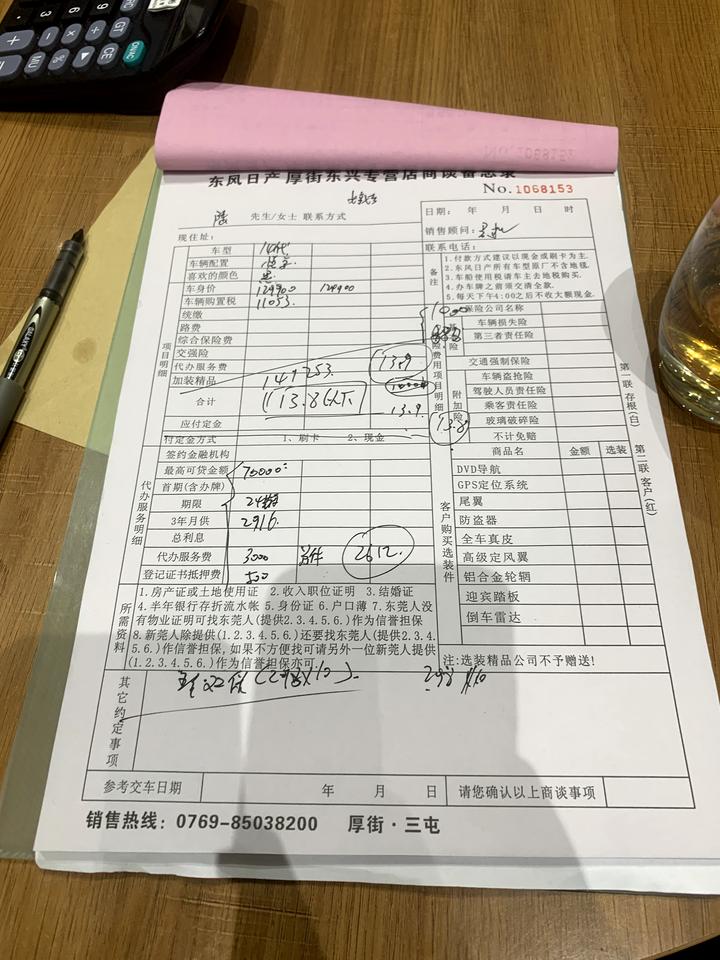 东风日产 厚街东兴专营店商谈备忘录
No.1068153
先生/女士 联系方式
日期： 年 月 日 时
销售顾问：
现住址：
联系电话：
车型 14代
车辆配置
喜欢的颜色 黑
车身价 129900 129900
车辆购置税 11053
统缴
路费
综合保险费
交强险
代办服务费
加装精品
合计
应付定金
项目明细
149253.
13.9
13.8以下
13.9.
13.8
付定金方式 1、刷卡 2、现金
备注
1.付款方式建议以现金或刷卡为主.
2.东风日产所有车型原厂不含地毯.
3.车船使用税请车主去地税购买.
4.办车牌之前须交清全款.
5.每天下午4:00之后不收大额现金.
保险公司名称
车辆损失险
第三者责任险
交通强制保险
车辆盗抢险
驾驶人员责任险
乘客责任险
玻璃破碎险
不计免赔
险费用项目明细
附加险
第一联 存根(白)
第二联 客户(红)
签约金融机构
最高可贷金额 70000
首期(含办牌)
期限 24期
3年月供 2916.
总利息
代办服务费 3000
2612.
登记证书抵押费 500
代办服务明细
商品名 金额 选装
DVD导航
GPS定位系统
尾翼
防盗器
全车真皮
高级定风翼
铝合金轮辋
迎宾踏板
倒车雷达
客户购买选装件
注:选装精品公司不予赠送!
所需资料
1.房产证或土地使用证 2.收入职位证明 3.结婚证
4.半年银行存折流水帐 5.身份证 6.户口薄 7.东莞人没
有物业证明可找东莞人(提供2.3.4.5.6.)作为信誉担保
8.新莞人除提供(1.2.3.4.5.6.)还要找东莞人(提供2.3.4.
5.6.)作信誉担保,如果不方便找可请另外一位新莞人提供
(1.2.3.4.5.6.)作为信誉担保亦可.
其它约定事项
参考交车日期 年 月 日 请您确认以上商谈事项
销售热线：0769-85038200 厚街·三屯